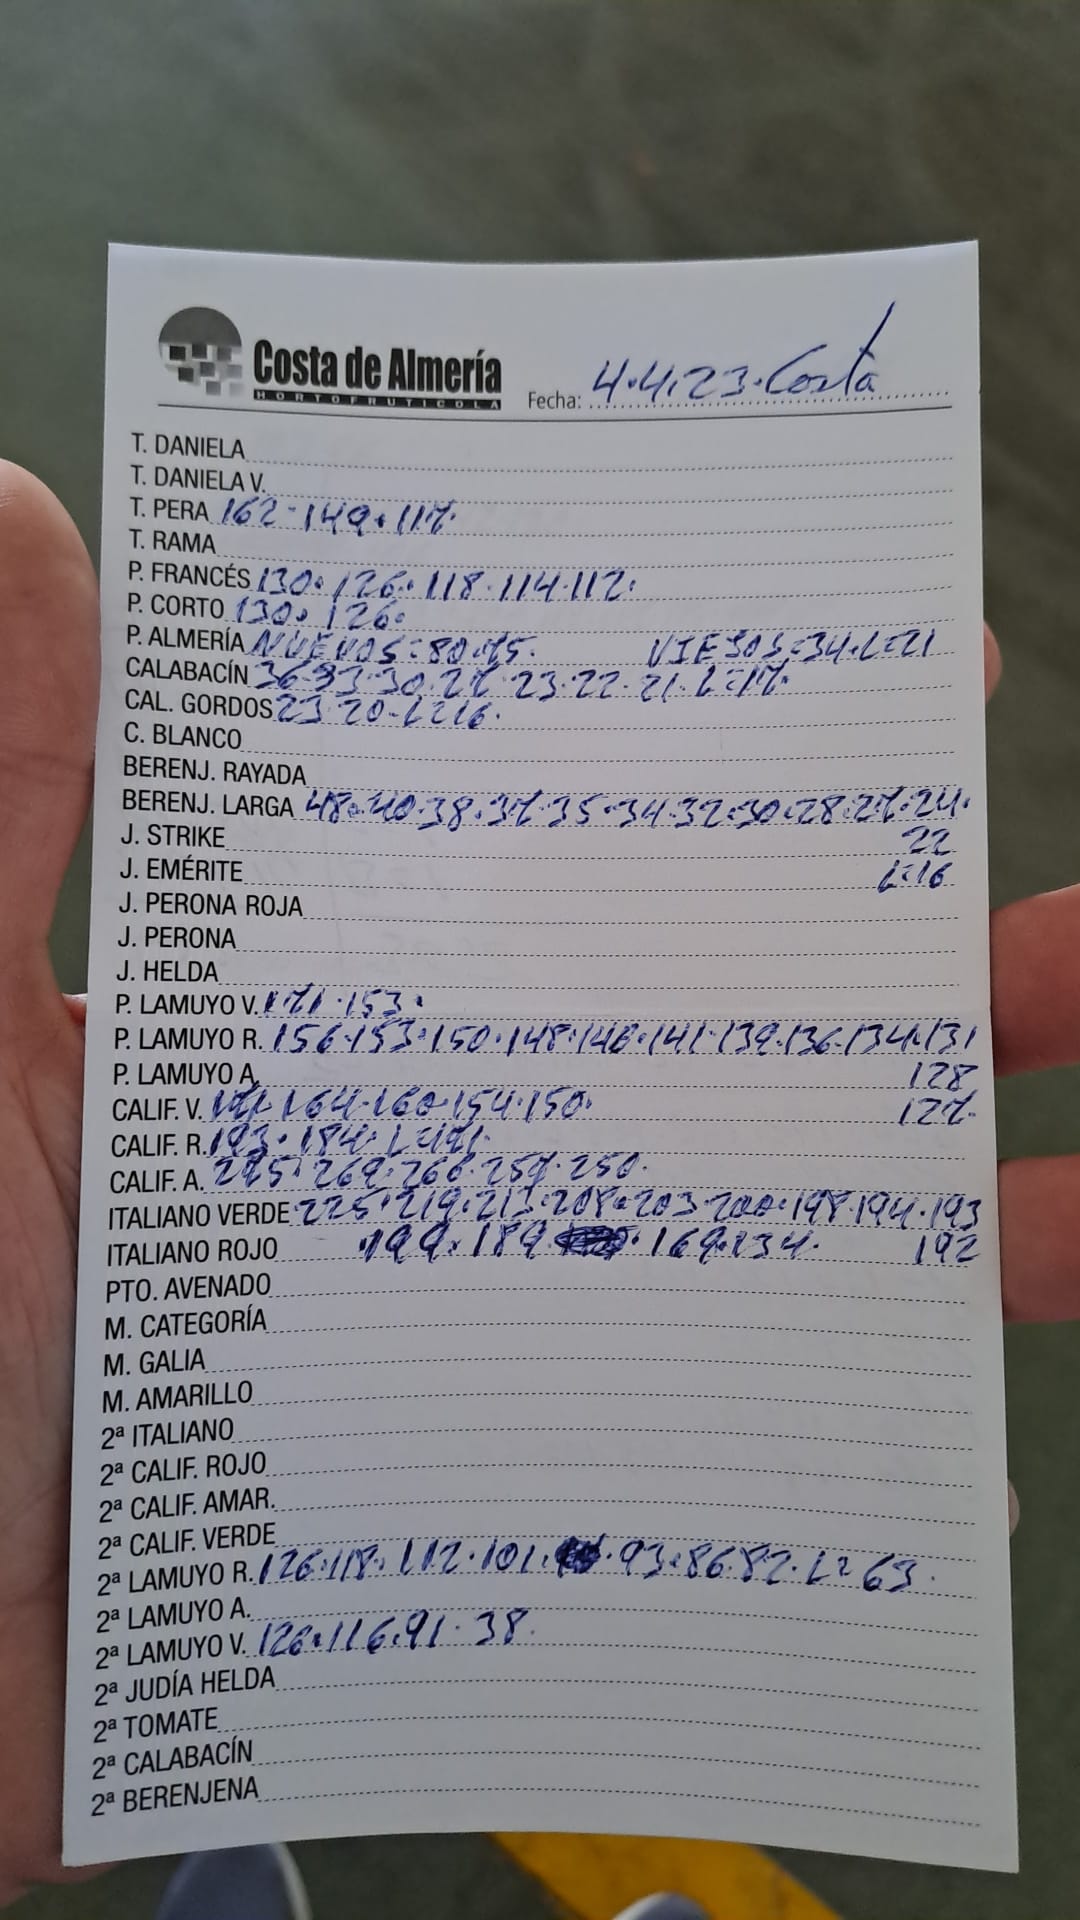 Costa de Almería
HORTOFRUTICOLA
Fecha: 4.4.23.Costa
T. DANIELA
T. DANIELA V.
T. PERA 162-149.117.
T. RAMA
P. FRANCÉS 130.126.118.114.112.
P. CORTO 130.126.
P. ALMERÍA NUEVOS=80.75. VIEJOS=34.L=21
CALABACÍN 36.33.30.27.23.22.21.L=17.
CAL. GORDOS 23.20.L=16.
C. BLANCO
BERENJ. RAYADA
BERENJ. LARGA 48.40.38.37.35.34.32.30.28.27.24.
J. STRIKE 22
J. EMÉRITE L=16
J. PERONA ROJA
J. PERONA
J. HELDA
P. LAMUYO V. 171.153.
P. LAMUYO R. 156.153.150.148.146.141.139.136.134.131
P. LAMUYO A. 128
CALIF. V. 171.164.160.154.150. 127.
CALIF. R. 193.184.L=171.
CALIF. A. 269.266.257.250.
ITALIANO VERDE 225.219.213.208.203.200.198.194.193
ITALIANO ROJO 199.189.169.134. 192
PTO. AVENADO
M. CATEGORÍA
M. GALIA
M. AMARILLO
2ª ITALIANO
2ª CALIF. ROJO
2ª CALIF. AMAR.
2ª CALIF. VERDE
2ª LAMUYO R. 126.118.112.101.93.86.82.L=63.
2ª LAMUYO A.
2ª LAMUYO V. 126.116.91.38.
2ª JUDÍA HELDA
2ª TOMATE
2ª CALABACÍN
2ª BERENJENA